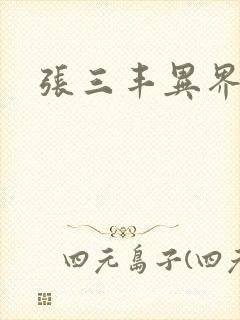 張三丰異界
四元島子(四元